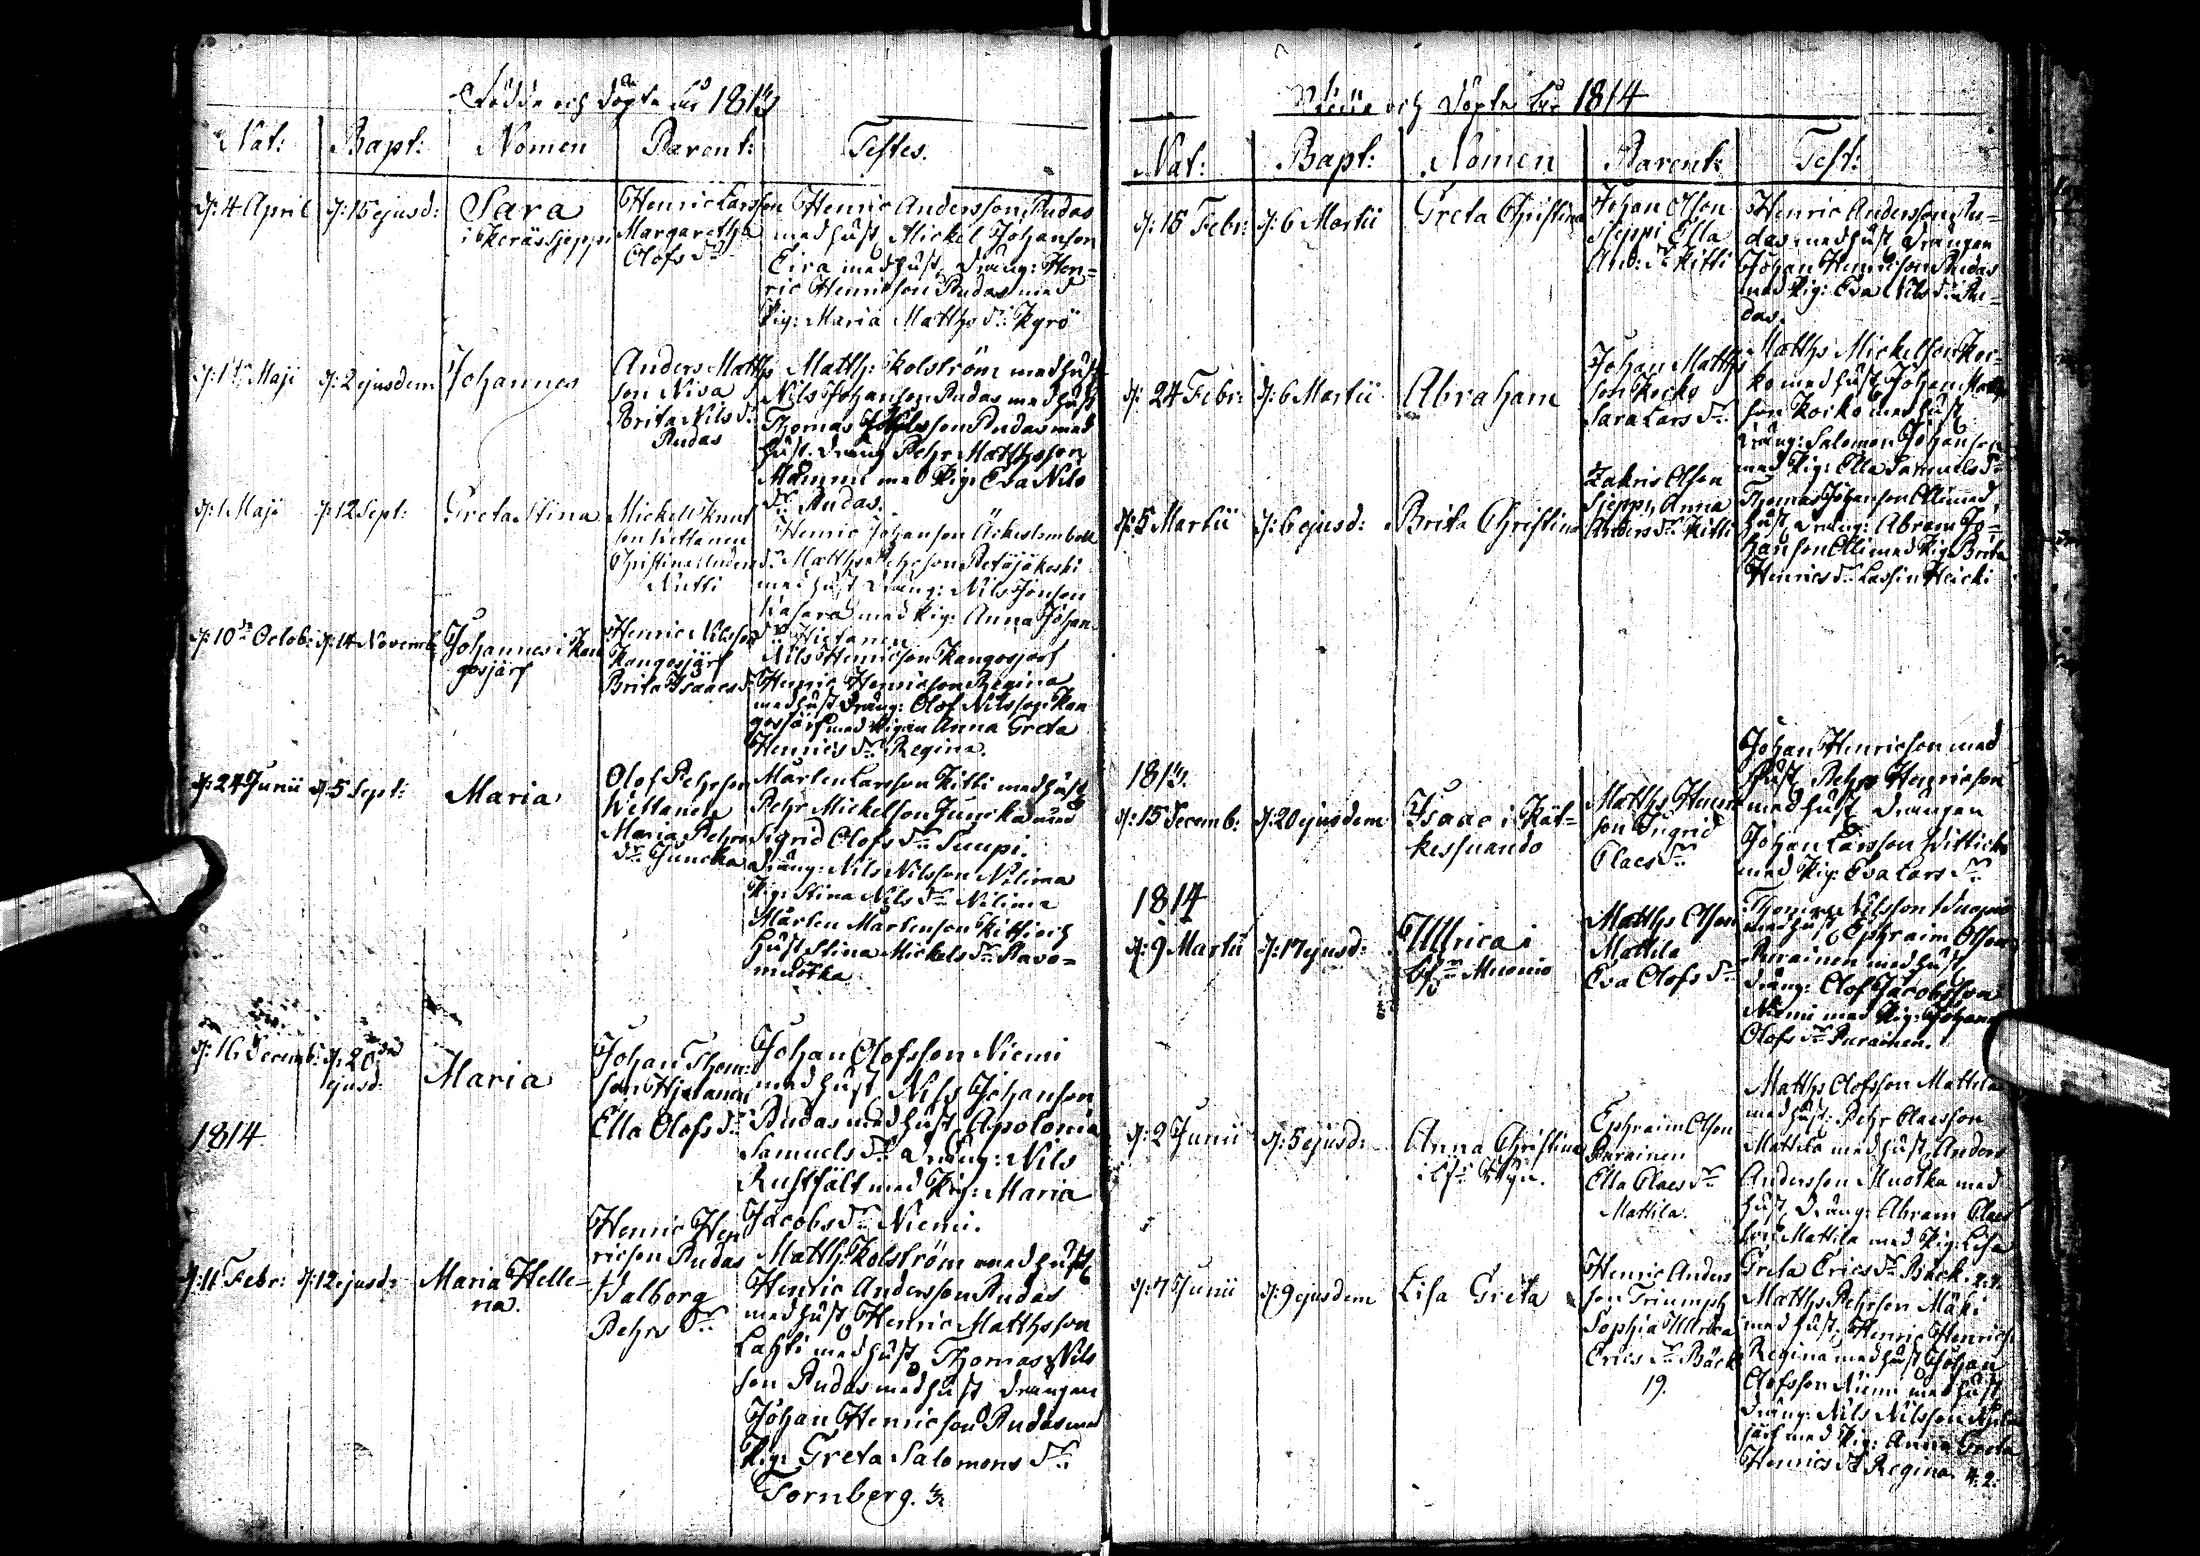 Födde och döpte År 1813
Nat: Bapt: Nomen Parent: Testes.
d: 4 April d: 15 ejusd: Sara
i Keräs Sjeppi
Henric Larsson
Margaretha
Olofs dr
Henric Andersson Rudas
med hust, Mickel Johansson
Eira med hust, dräng: Hen=
ric Henricsson Rudas med
Pig: Maria Matths dr: Kyrö
d: 1 Maji d: 2 ejusdem Johannes
Anders Matths
son Niva
Brita Nils dr
Rudas
Matth: Kolström med hust
Nils Johanson Rudas med hust
Thomas Nilsson Rudas med
hust. dräng Pehr Matthsson
med Pig: Eva Nils
dr Rudas.
d: 1 Maji d: 12 Sept: Greta Stina
Mickel Knut
son
Christina
Nutti
Henric Johanson
Matths Pehrson
med hust dräng: Nils Jönson
med Pig: Anna Johan
dr Hietanen
d: 10 Octob: d: 14 Novemb: Johannes i Kan
gosjärf
Henric Nilsson
Kangosjärf
Brita Isaacs dr
Nils Henricson Kangosjärf
Henric Henricson Regina
med hust dräng: Olof Nilsson Kan
gosjärf med Pigan Anna Greta
Henrics dr Regina.
d: 24 Junii d: 5 Sept: Maria
Olof Pehrson
Wittanen
Maria Pehrs
dr Juncka
Mårten Larsson Kitti med hust
Pehr Mickelson Juncka med
Sigrid Olofs dr Suupi.
dräng: Nils Nilsson Nilima
Pig: Stina Nils dr Nilima
Mårten Mårtenson Kitti och
Hust Stina Mickels dr Ravo=
muotka
d: 16 Decemb: d: 20
ejusd: Maria
Johan Thom:
son Hjetanen
Ella Olofs dr
Johan Olofsson Niemi
med hust Nils Johanson
Rudas med hust, Apolonia
Samuels dr dräng: Nils
Rustfält med Pig: Maria
Jacobs dr Niemi.
1814
d: 11 Febr: d: 12 ejusd: Maria Helle=
na.
Henric Hen
ricson Rudas
Walborg
Pehrs dr
Matth: Kolström med hust
Henric Andersson Rudas
med hust Henric Matthsson
Lahti med hust, Thomas Nils
son Rudas med hust drängen
Johan Henricson Rudas med
Pig: Greta Salomons dr
Tornberg.
Födde och döpte År 1814
Nat: Bapt: Nomen Parent: Test:
d: 15 Febr: d: 6 Martii Greta Christina
Johan Olson
Sieppi Ella
And: dr Kitti
Henric Andersson Ru=
das med hust drängen
Johan Henricson Rudas
med Pig: Eva Nils dr Ru=
das.
d: 24 Febr: d: 6 Martii Abraham
Johan Matths
son Kocko
Sara Lars dr
Matths Mickelson Koc=
ko med hust Johan Matths
son Kocko med hust
dräng: Salomon Johanson
med Pig: Ella Samuels dr
d: 5 Martii d: 6 ejusd: Brita Christina
Zakris Olson
Sjeppi, Anna
Anders dr Kitti
Thomas Johanson Olli med
hust, dräng: Abram Jo=
hanson Olli med Pig: Brita
Henrics dr Lassin Heicki
1813.
d: 15 Decemb: d: 20 ejusdem Isaac i Kät=
kesuando
Matths Henr
son Ingrid
Claes dr
Johan Henricson med
Hust, Pehr Henricson
med hust drängen
Johan Larsson
med Pig: Eva Lars dr
1814
d: 9 Martii d: 17 ejusd: Ullrica i
Muonio
Matths Olson
Mattila
Eva Olofs dr
Thomas Nilsson
med hust, Ephraim Olson
Purainen med hust
dräng: Olof Jacobsson
Niemi med Pig: Johanna
Olofs dr Purainen.
d: 2 Junii d: 5 ejusd: Anna Christina
Ephraim Olson
Purainen
Ella Claes dr
Mattila.
Matths Olofsson Mattila
med hust. Pehr Claesson
Mattila med hust, Anders
Andersson Muotka med
hust, dräng: Abram Claes
son Mattila med Pig: Lisa
Greta Erics dr Bäck.
d: 7 Junii d: 9 ejusdem Lisa Greta
Henric Anders
son Triumph
Sophia Ullrica
Erics dr Bäck
19.
Matths Pehrson Mäki
med hust, Henric Henrics
Regina med hust Johan
Olofsson Niemi med hust
dräng: Nils Nilsson
järf med Pig: Anna Greta
Henrics dr Regina 4.2.